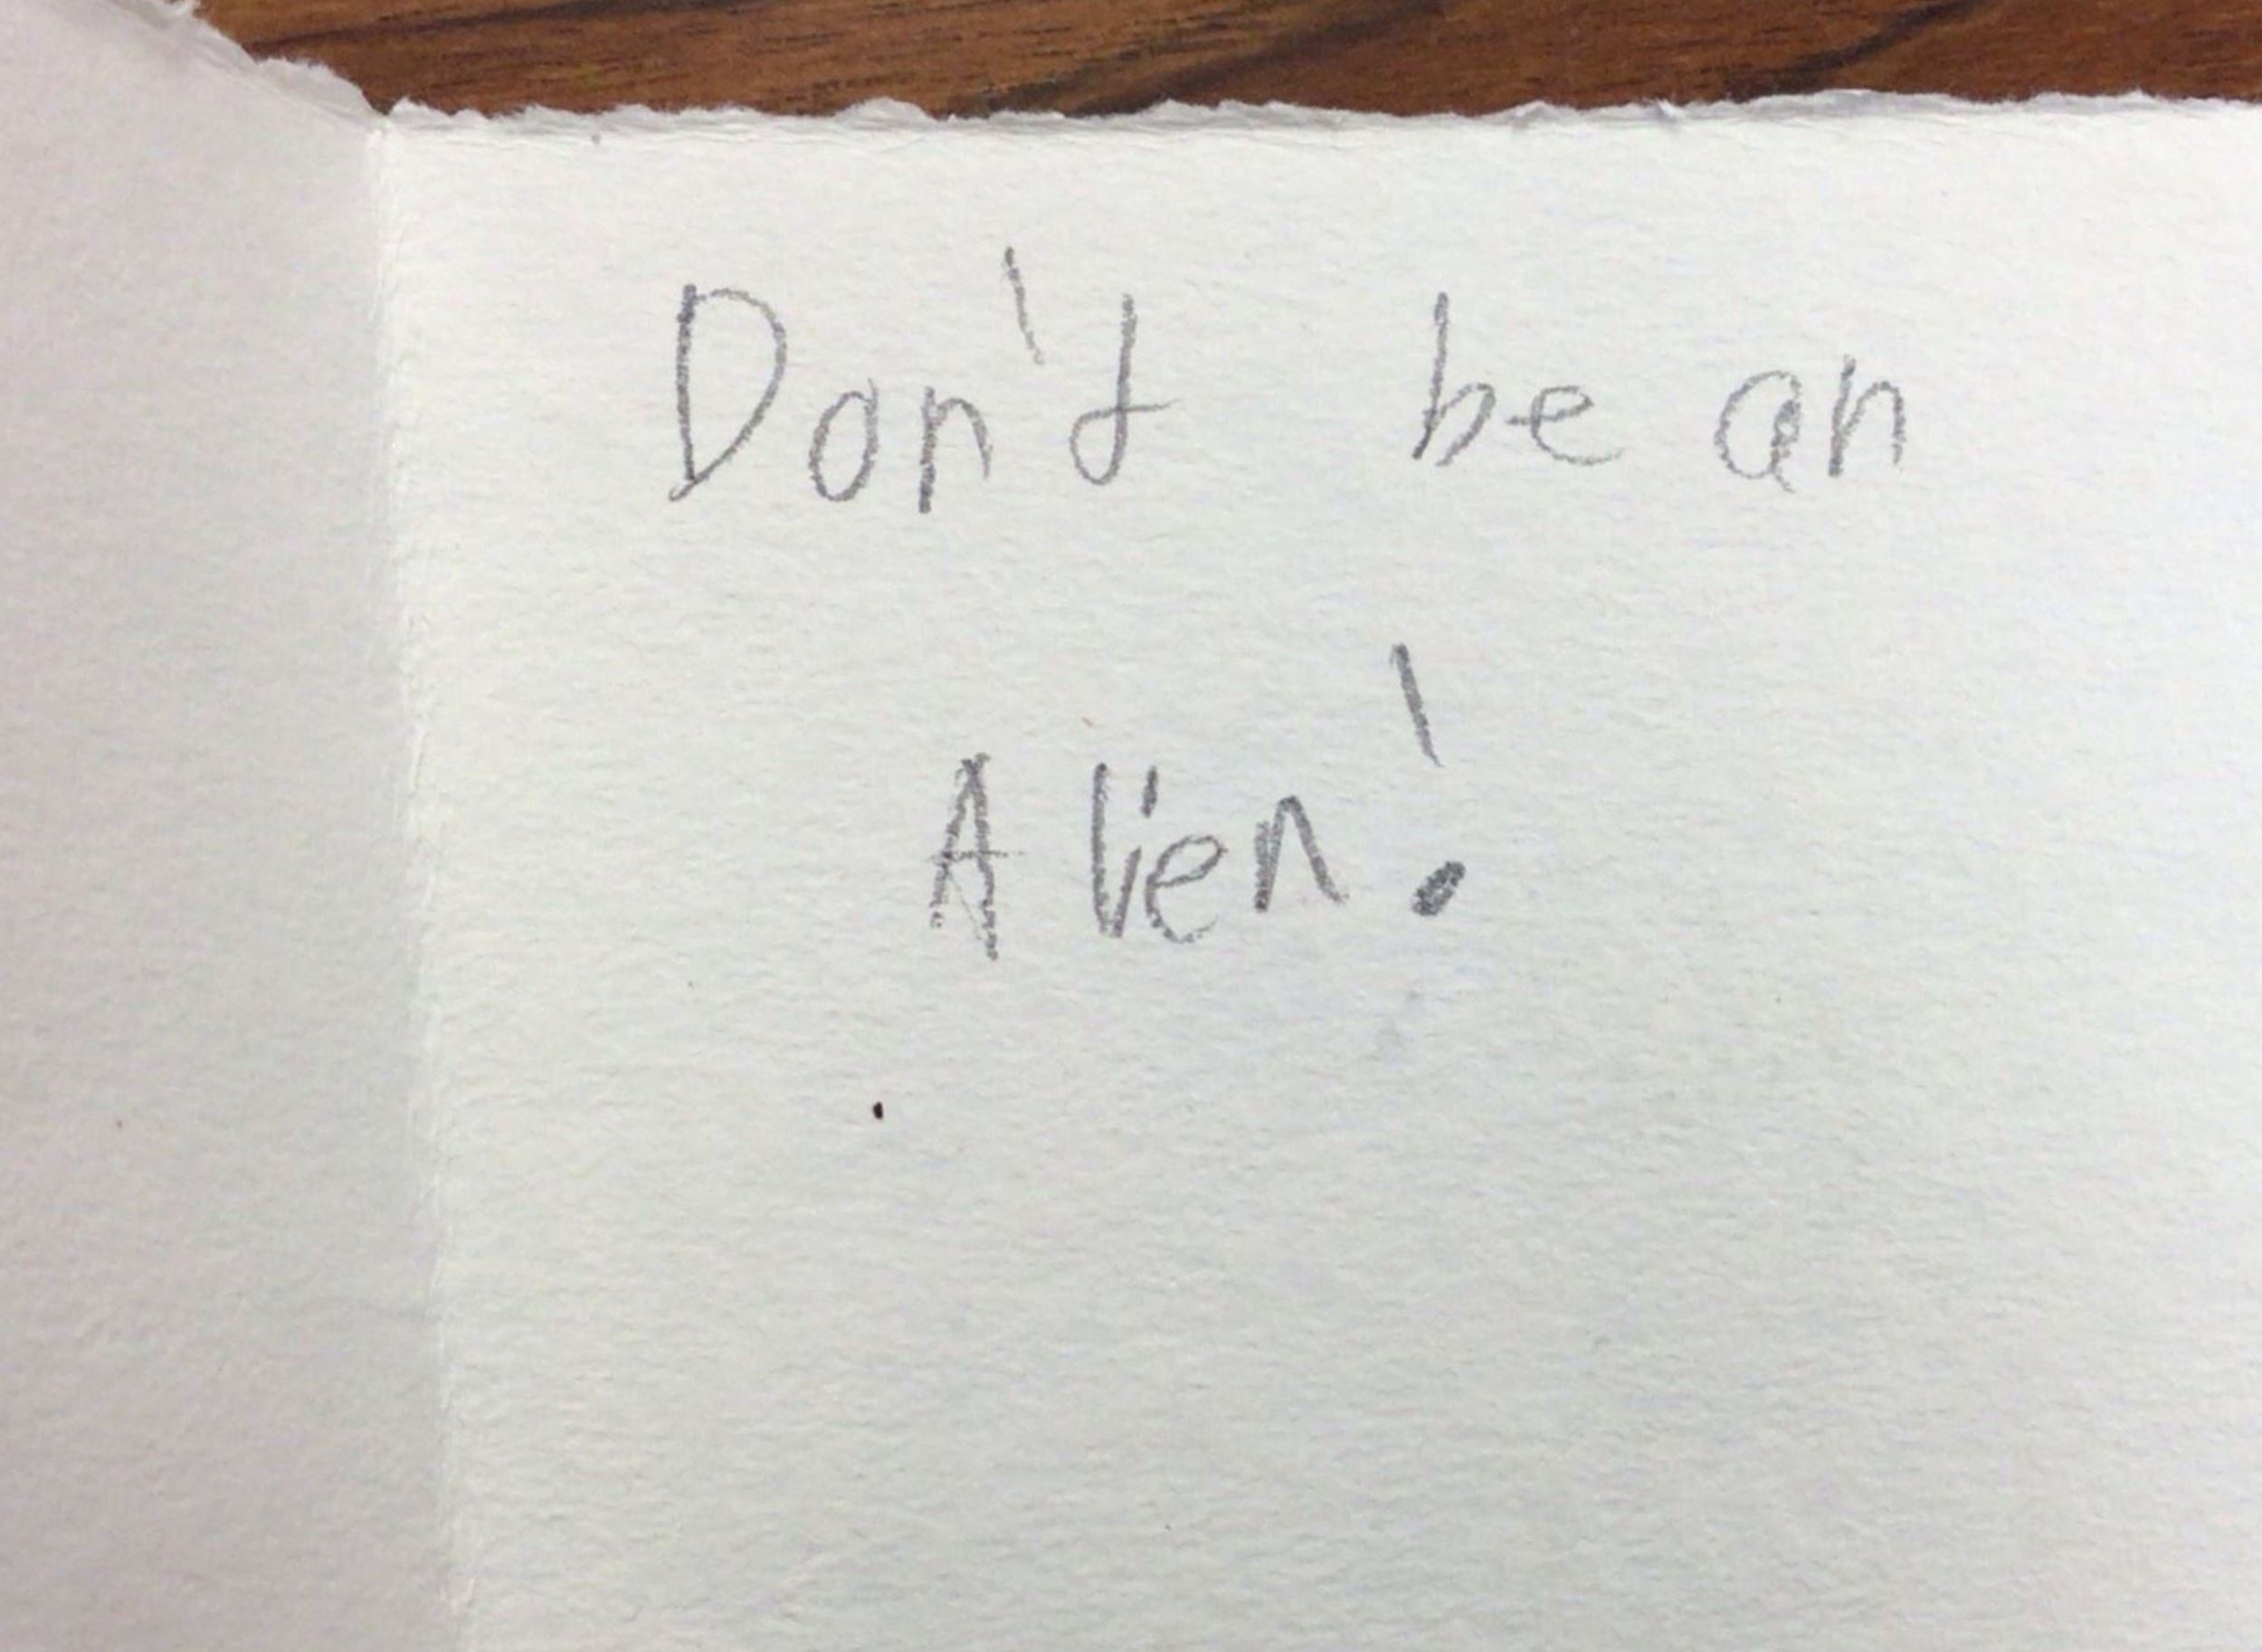 Don't be an
Alien!